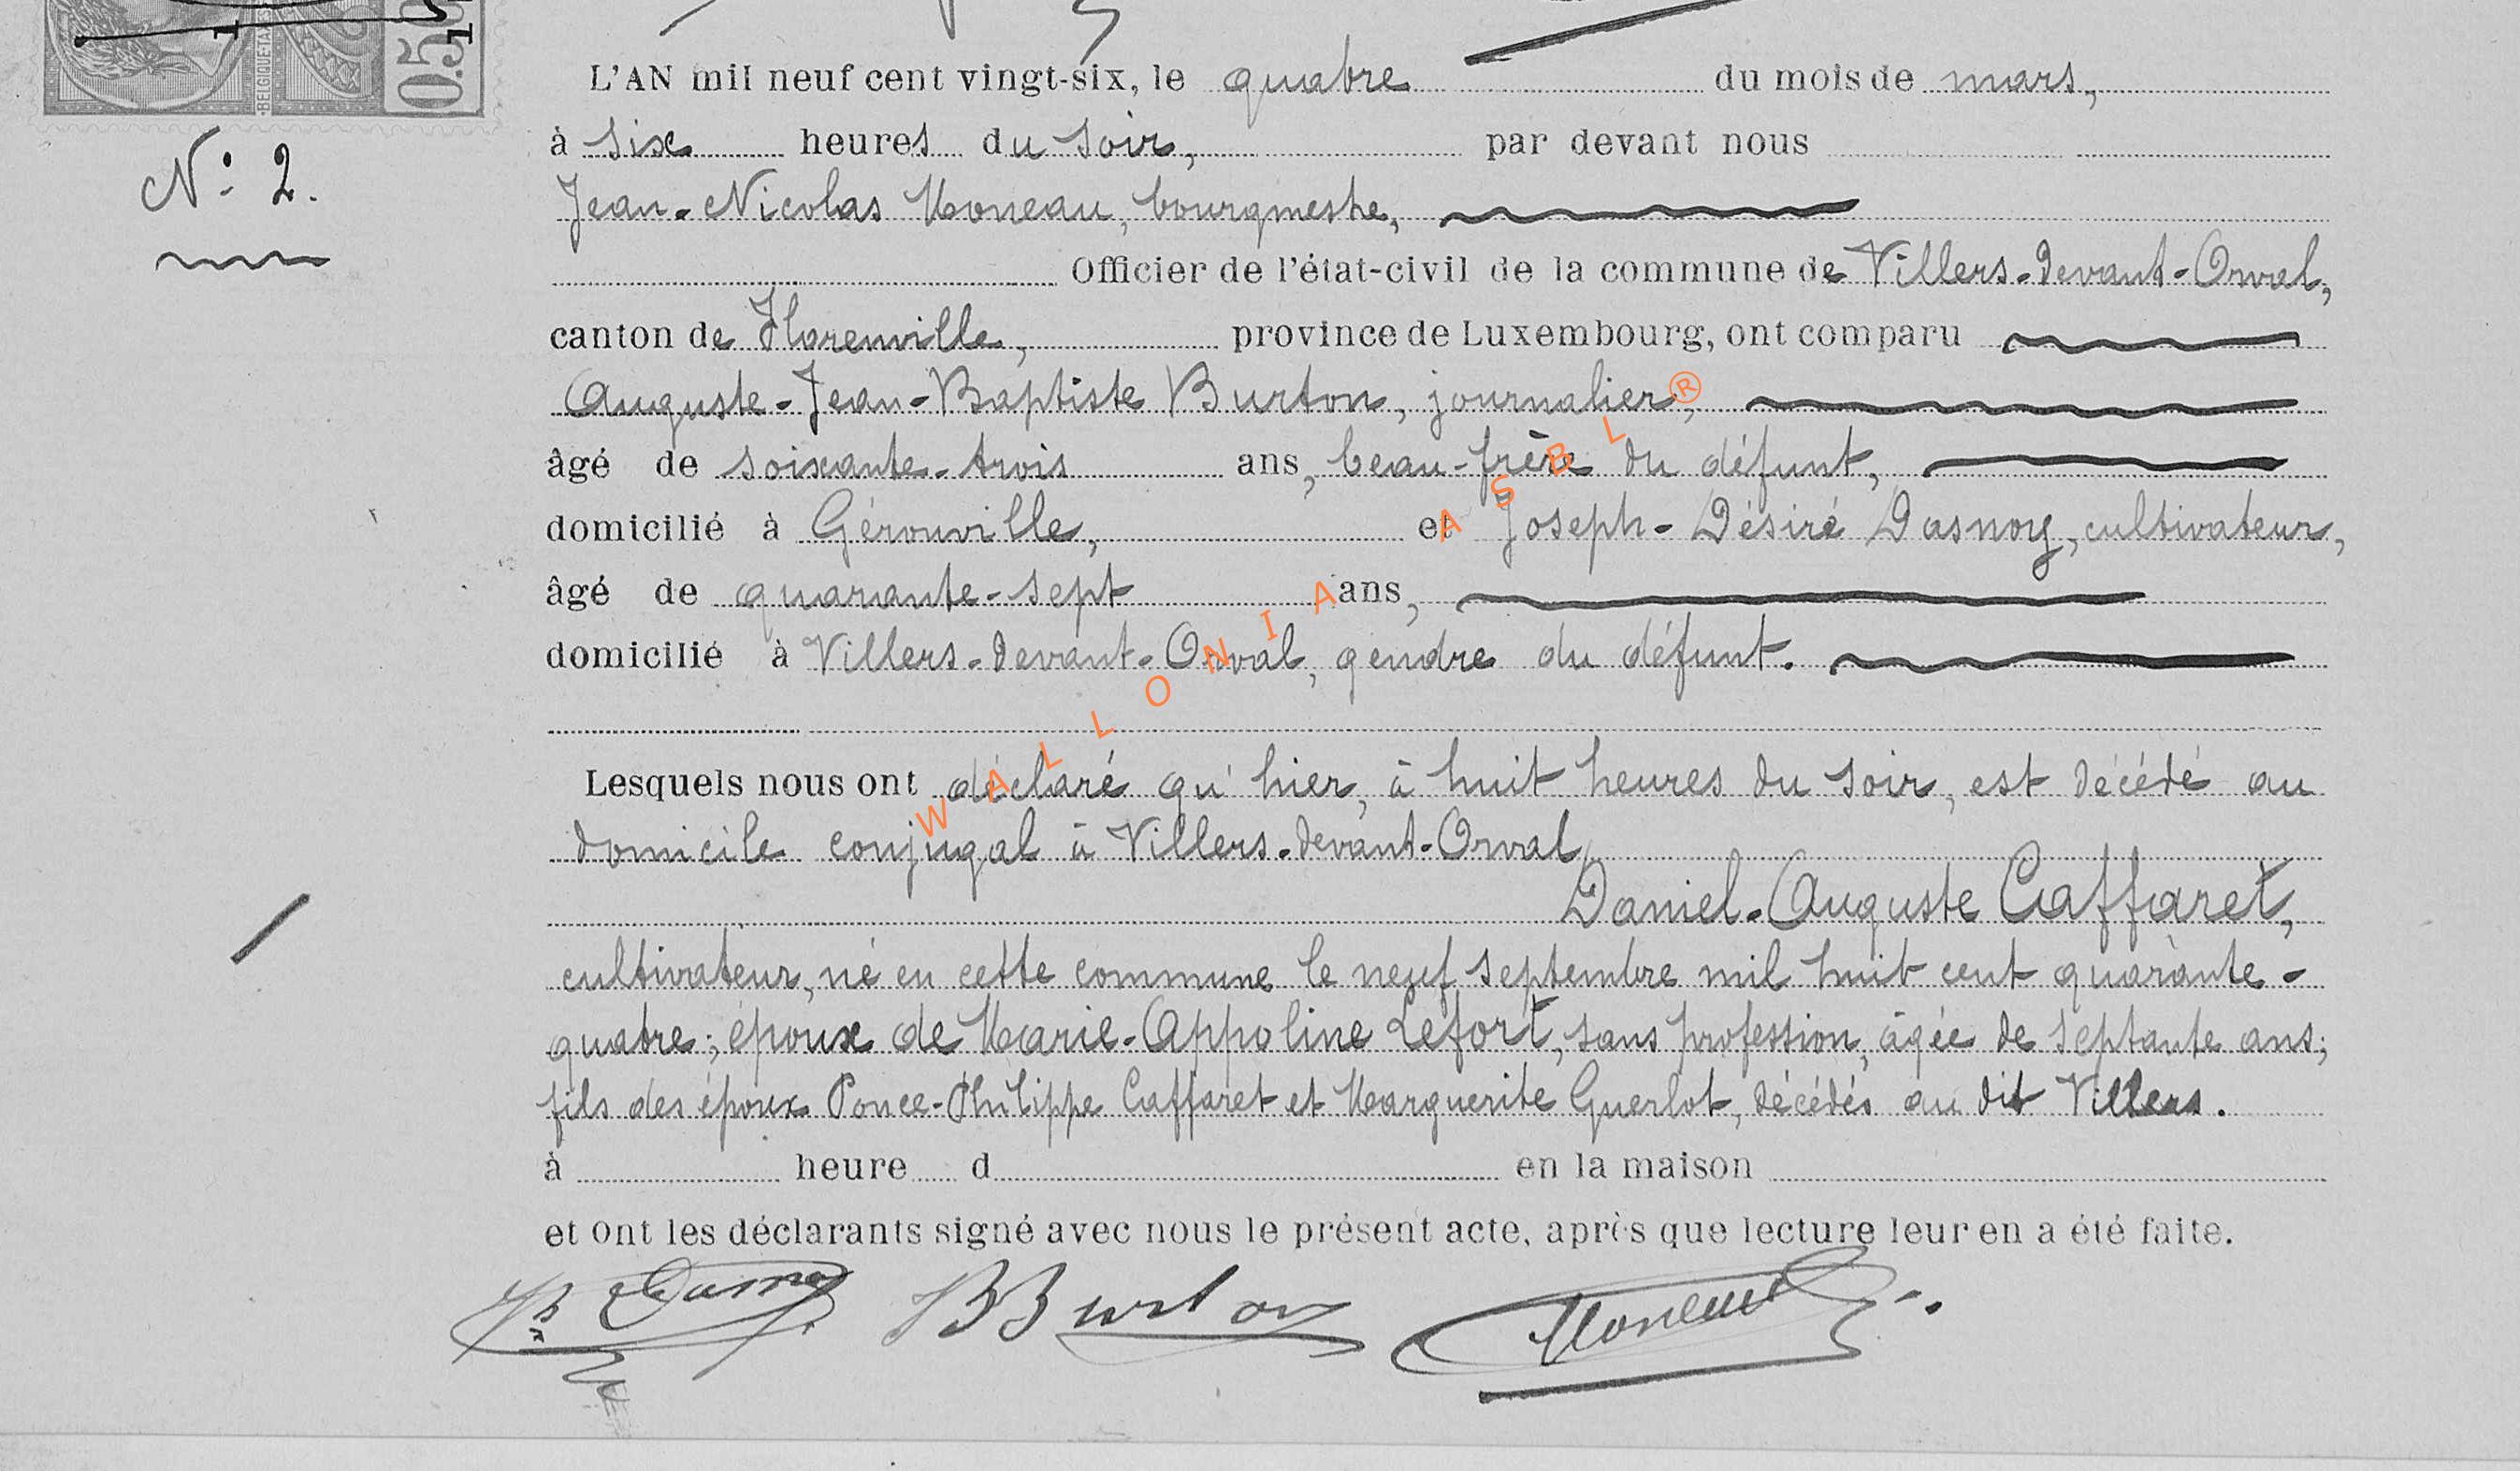 BELGIQUE ETA
0.50
L'AN mil neuf cent vingt-six, le quatre du mois de mars,
N° 2.
à six heures du soir, par devant nous
Jean-Nicolas Moneau, bourgmestre,
Officier de l'état-civil de la commune de Villers-devant-Orval,
canton de Florenville, province de Luxembourg, ont comparu
Auguste-Jean-Baptiste Burton, journalier,
âgé de soixante-trois ans, beau-frère du défunt,
domicilié à Gérouville, et Joseph-Désiré Dasnoy, cultivateur,
âgé de quarante-sept ans,
domicilié à Villers-devant-Orval, gendre du défunt.
Lesquels nous ont déclaré qu'hier, à huit heures du soir, est décédé au
domicile conjugal à Villers-devant-Orval,
Daniel-Auguste Caffaret,
cultivateur, né en cette commune le neuf septembre mil huit cent quarante-
quatre; époux de Marie-Appoline Lefort, sans profession, âgée de septante ans;
fils des époux Ponce-Philippe Caffaret et Marguerite Guerlot, décédés au dit Villers.
à heure d en la maison
et ont les déclarants signé avec nous le présent acte, après que lecture leur en a été faite.
Dasnoy Burton Moneau
WALLONIA ASBL ®